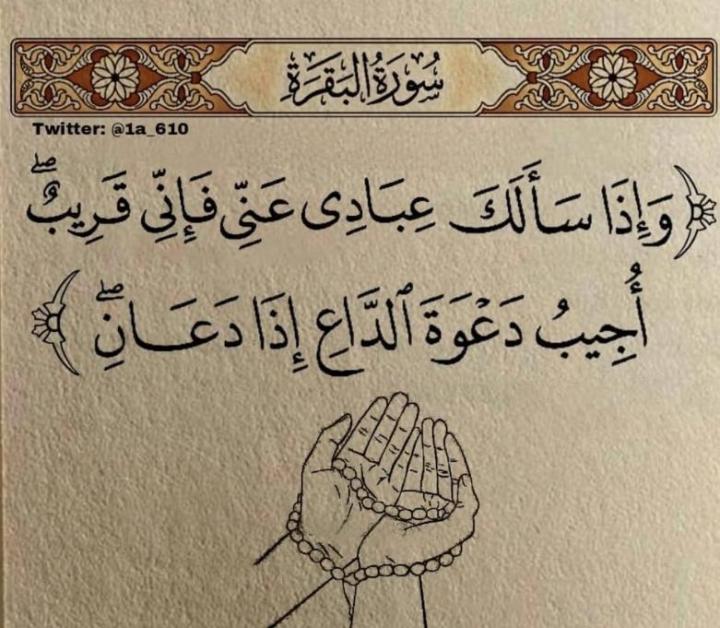 سُورَةُ البَقَرَةِ
Twitter: @1a_610
﴿وَإِذَا سَأَلَكَ عِبَادِى عَنِّى فَإِنِّى قَرِيبٌ ۖ
أُجِيبُ دَعْوَةَ ٱلدَّاعِ إِذَا دَعَانِ ۖ﴾